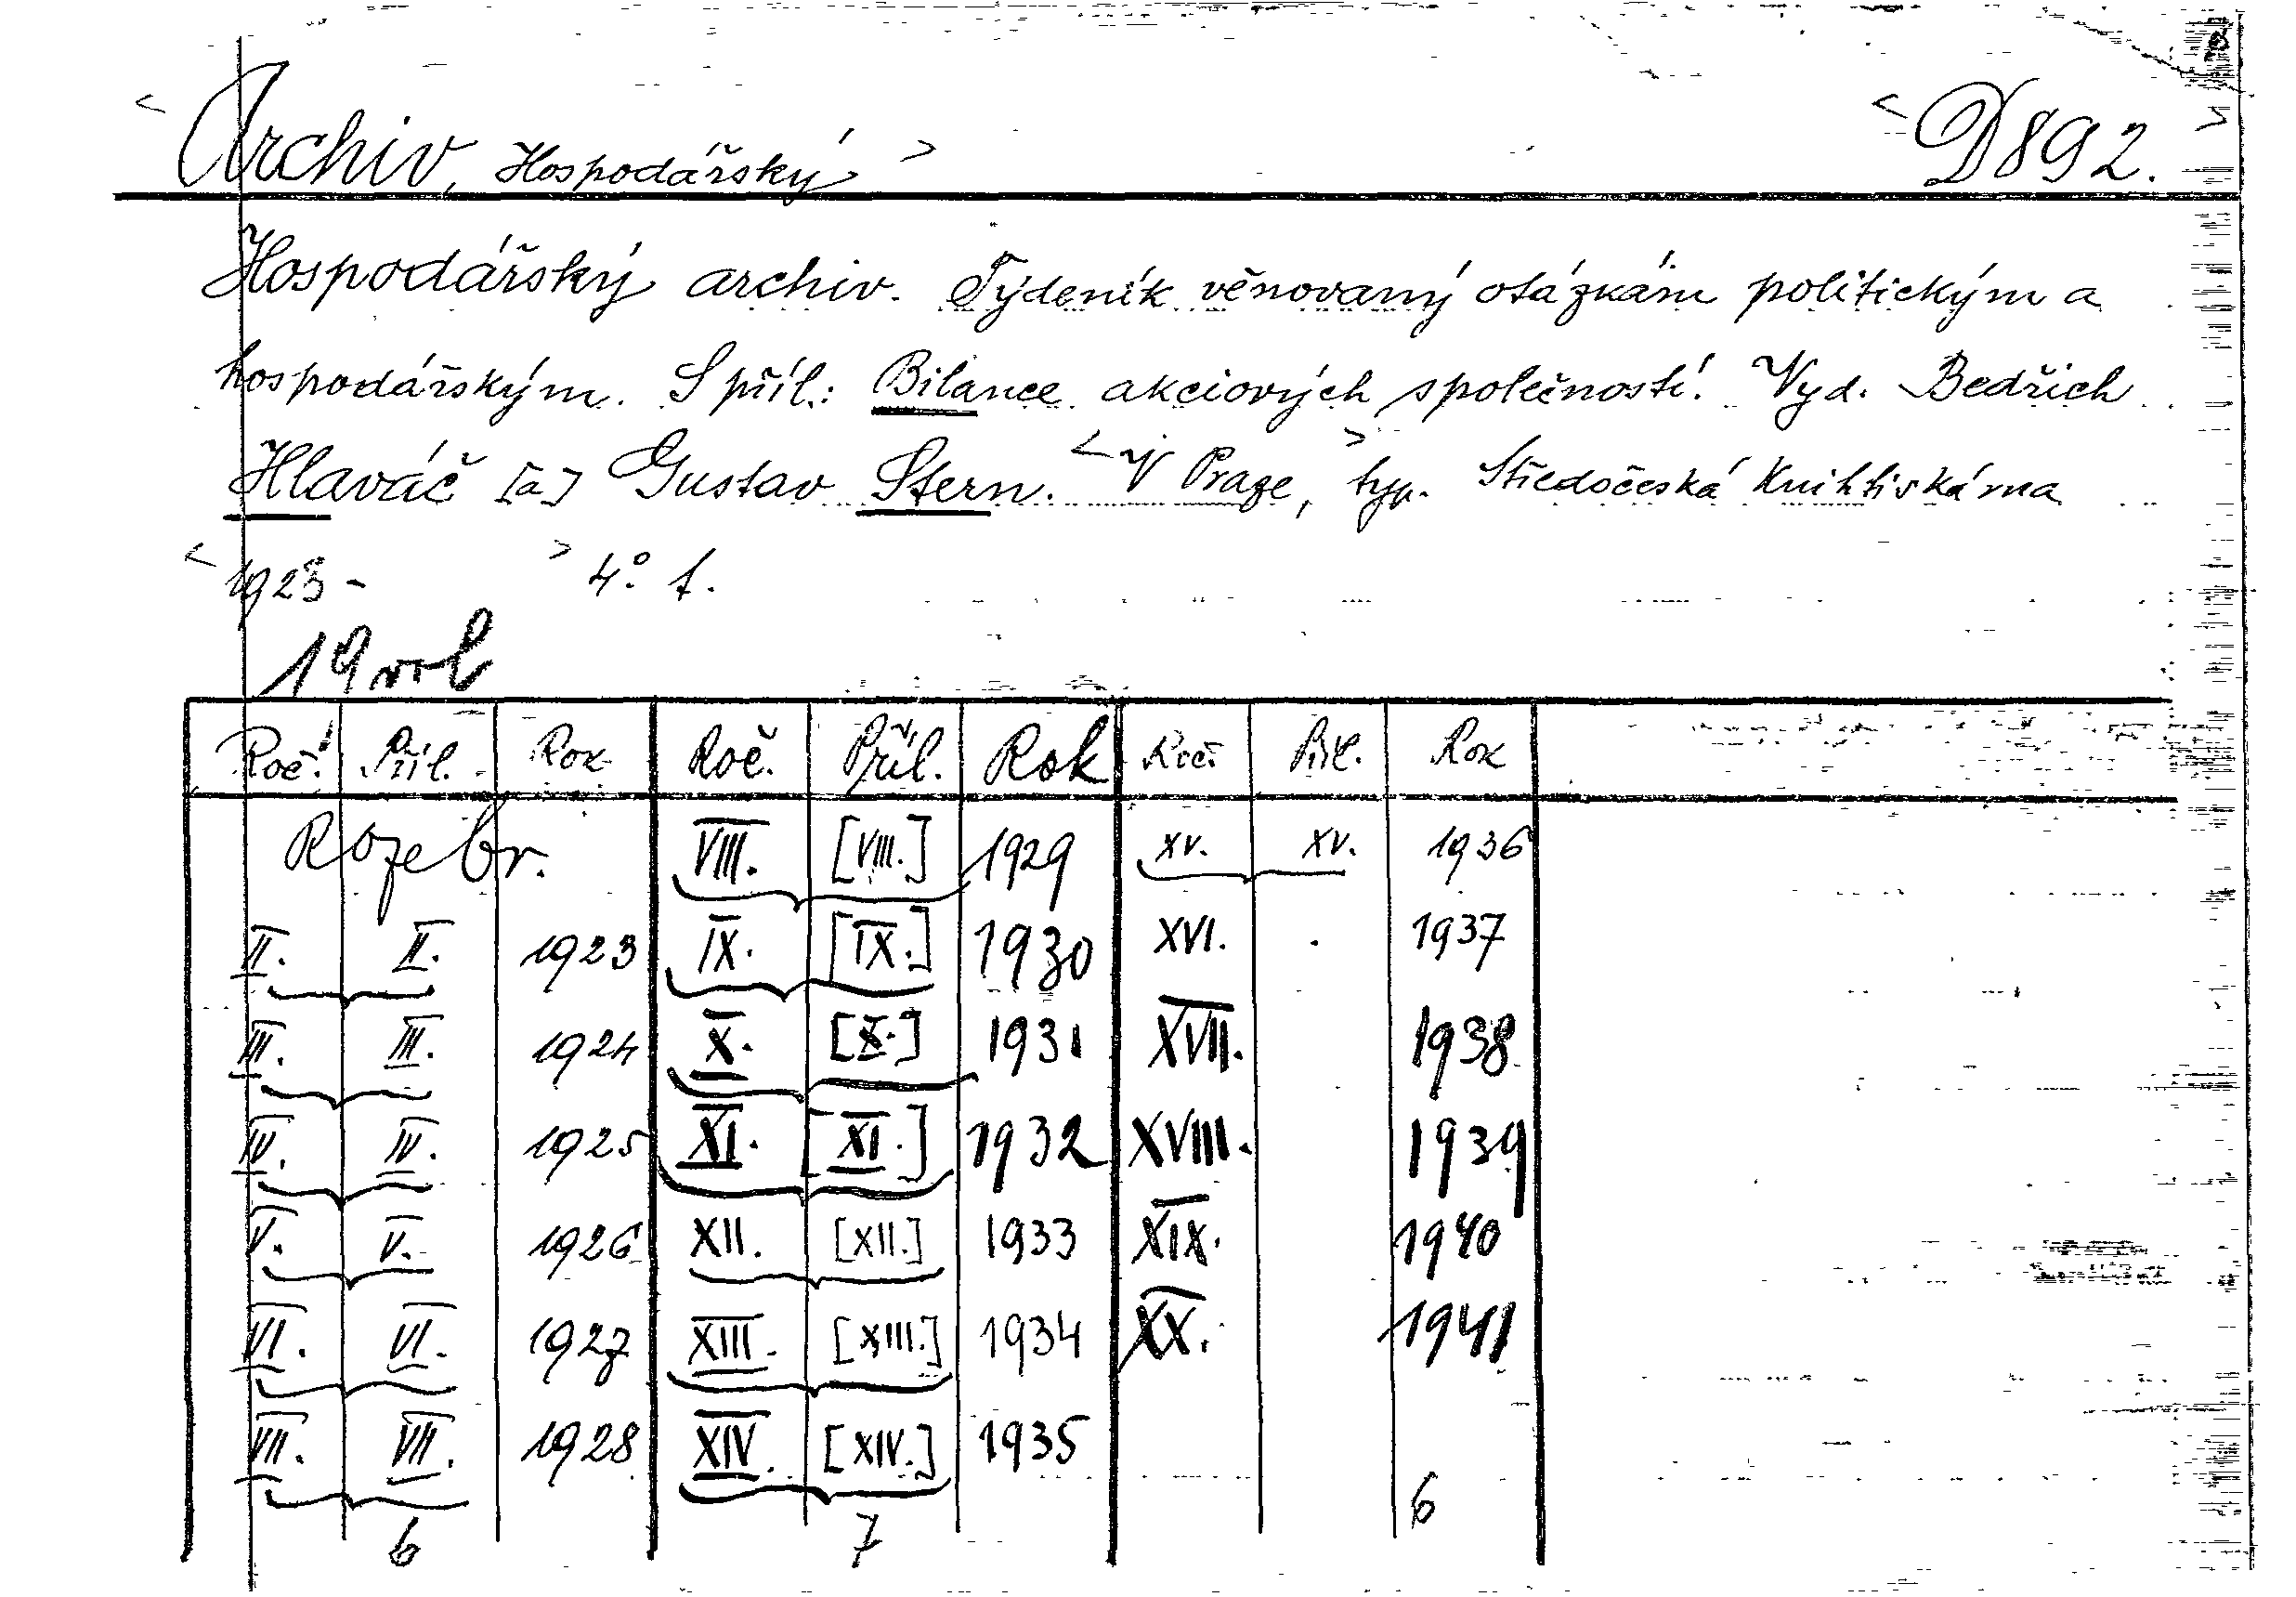 < Archiv, Hospodářský > < D 892. >
Hospodářský archiv. Týdeník věnovaný otázkám politickým a
hospodářským. S příl.: Bilance akciových společností. Vyd. Bedřich
Hlaváč [a] Gustav Stern. < V Praze, > typ. Středočeská knihtiskárna
< 1923 - > 4° f.
19
Roč. Příl. Rok Roč. Příl. Rok Roč. Příl. Rok
Rozebr. VIII. [VIII.] 1929 XV. XV. 1936
II. II. 1923 IX. [IX.] 1930 XVI. . 1937
III. III. 1924 X. [X.] 1931 XVII. 1938
IV. IV. 1925 XI. [XI.] 1932 XVIII. 1939
V. V. 1926 XII. [XII.] 1933 XIX. 1940
VI. VI. 1927 XIII. [XIII.] 1934 XX. 1941
VII. VII. 1928 XIV. [XIV.] 1935
6 7 6